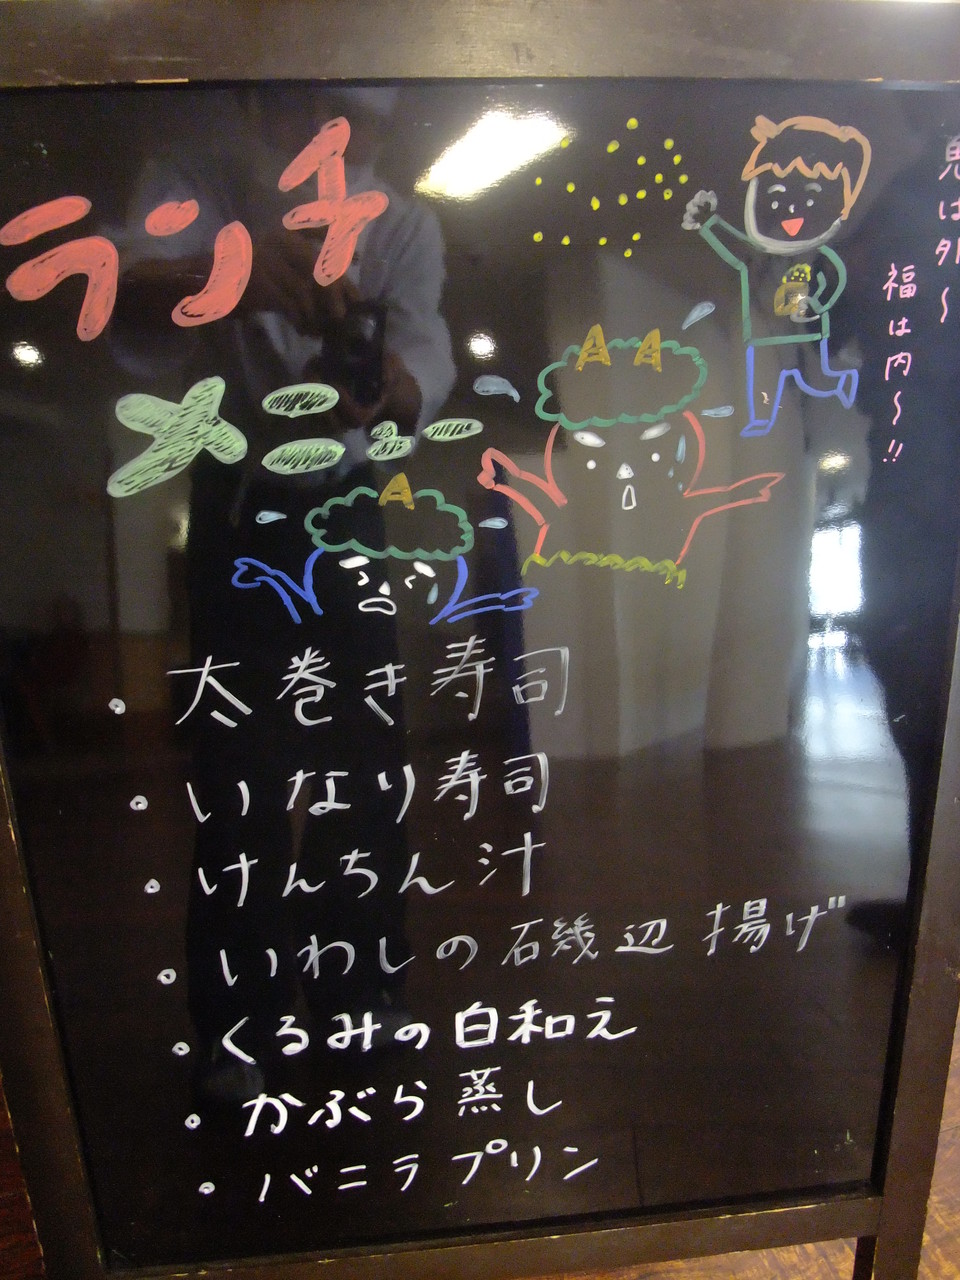 ランチ
メニュー
鬼は外〜
福は内〜!!
・太巻き寿司
・いなり寿司
・けんちん汁
・いわしの磯辺揚げ
・くるみの白和え
・かぶら蒸し
・バニラプリン